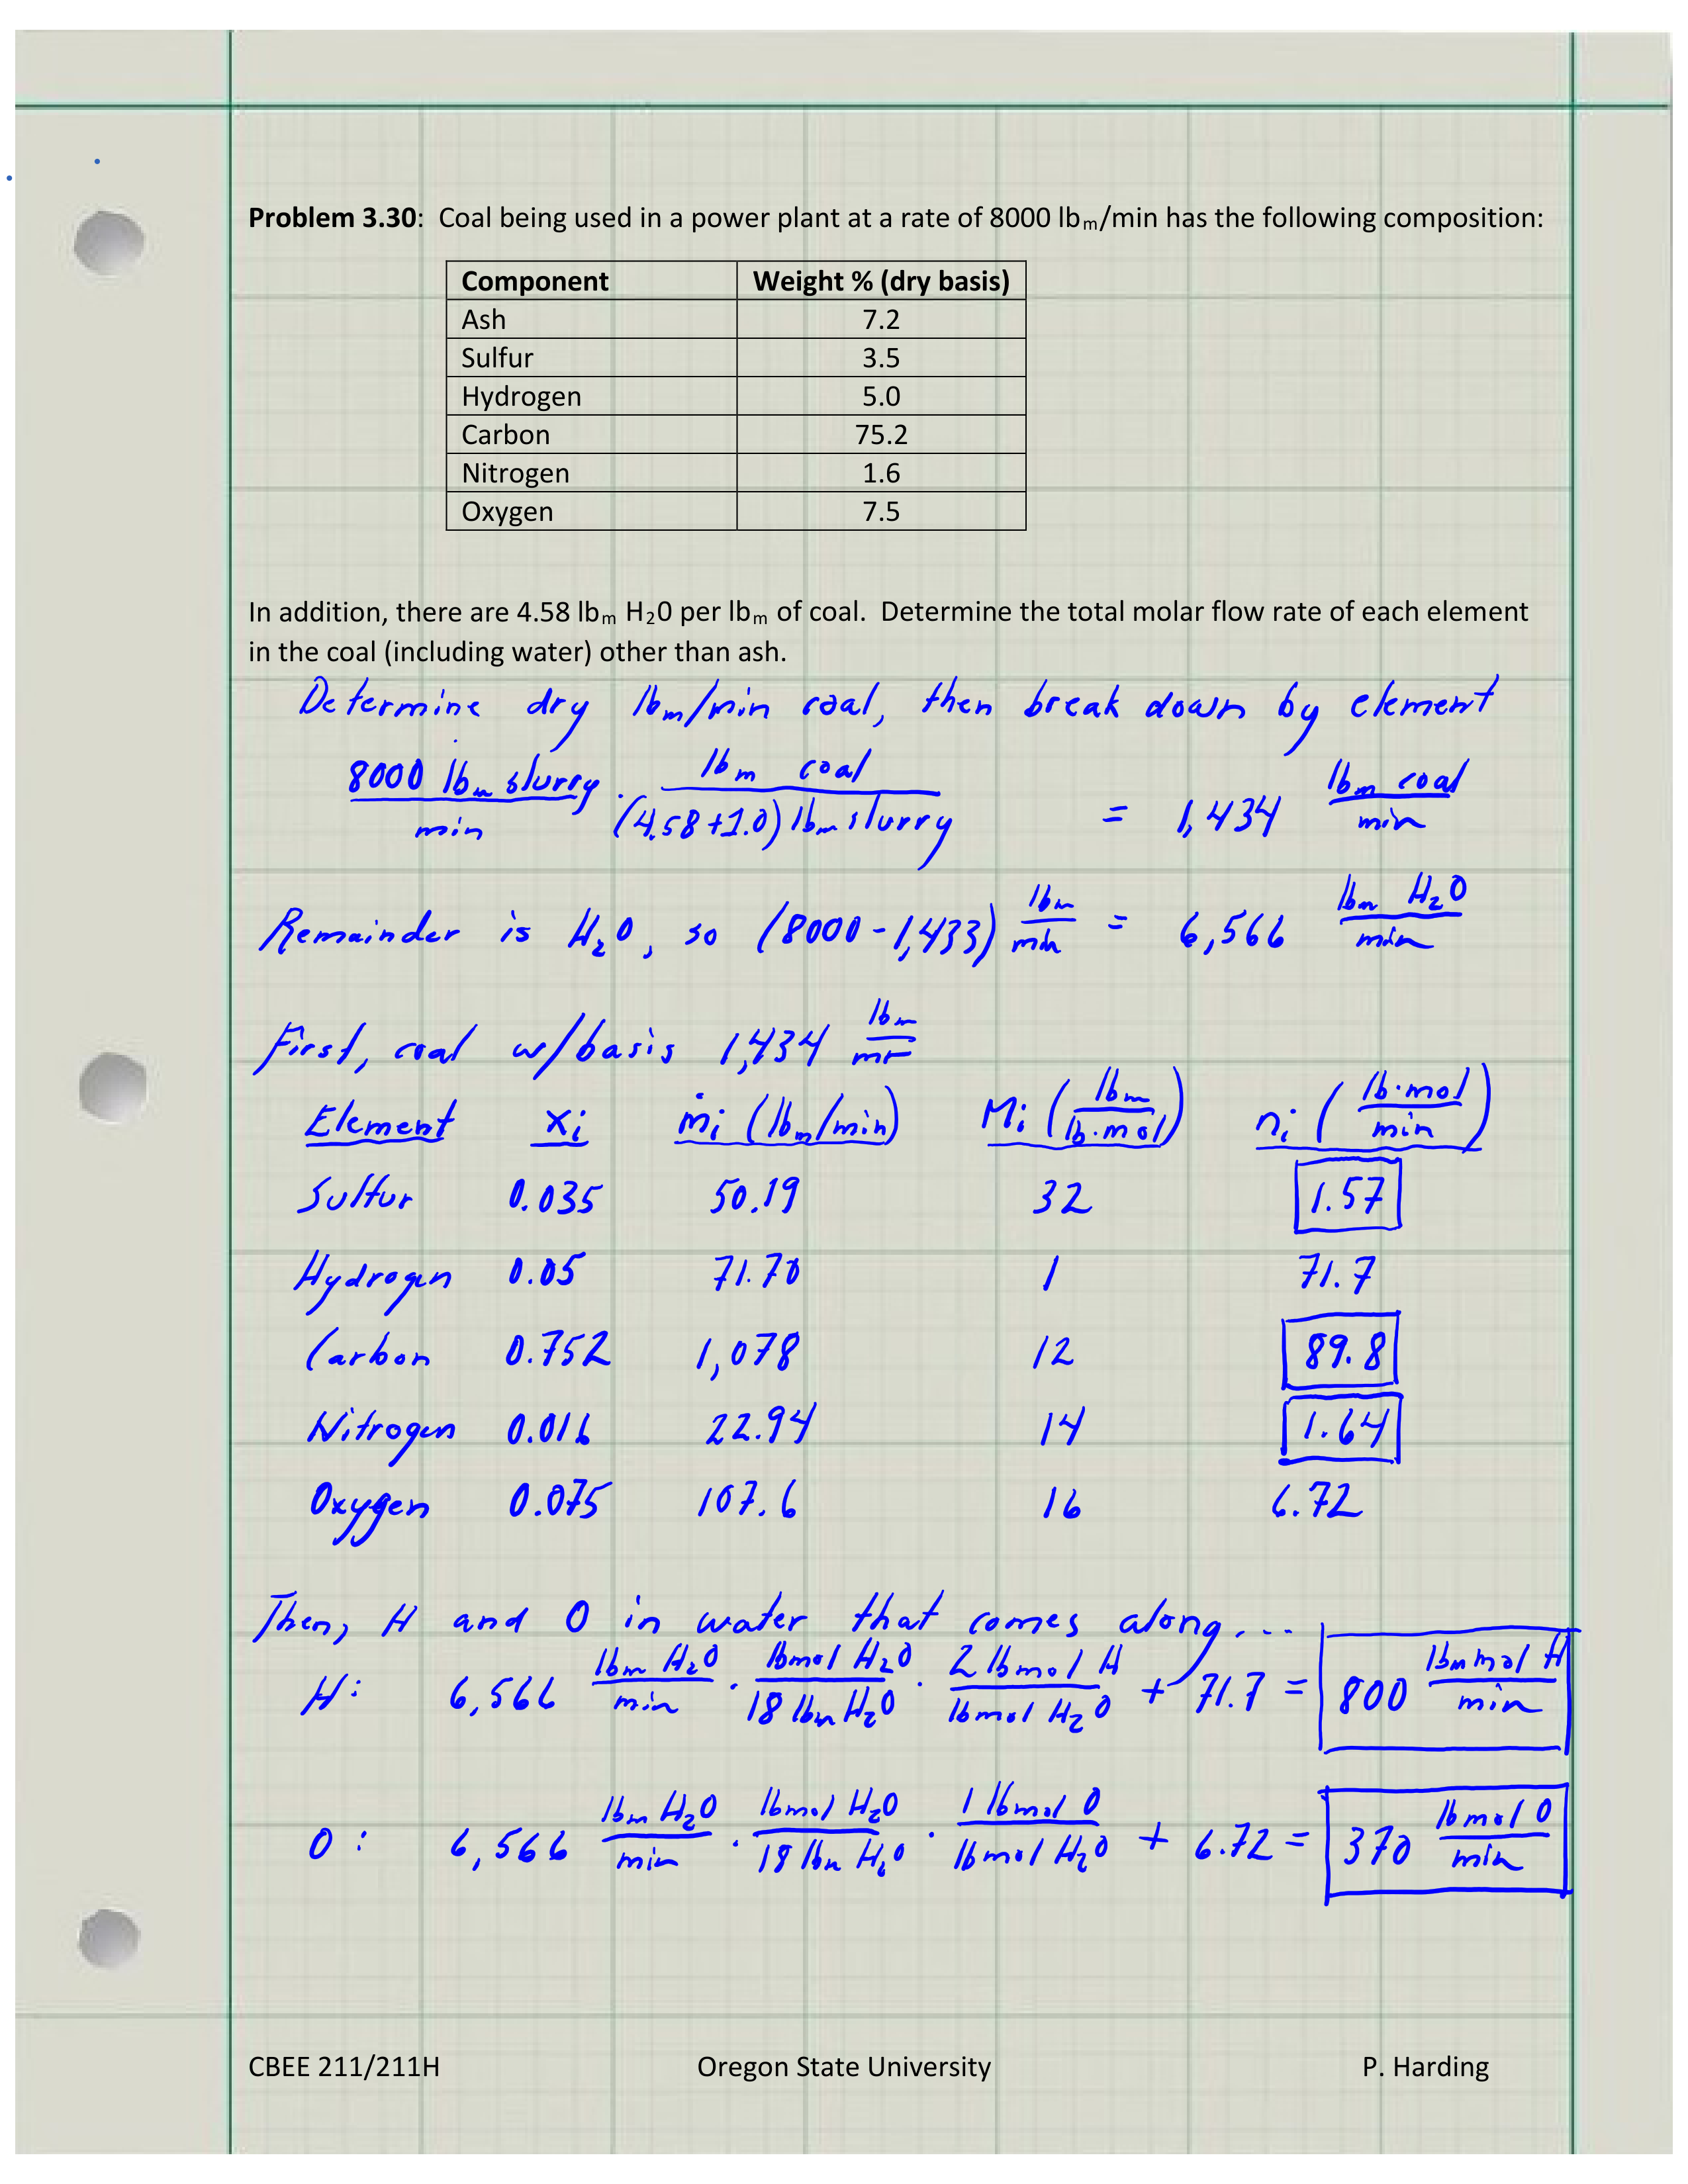 Problem 3.30: Coal being used in a power plant at a rate of 8000 lbm/min has the following composition:
Component Weight % (dry basis)
Ash 7.2
Sulfur 3.5
Hydrogen 5.0
Carbon 75.2
Nitrogen 1.6
Oxygen 7.5
In addition, there are 4.58 lbm H20 per lbm of coal. Determine the total molar flow rate of each element
in the coal (including water) other than ash.
Determine dry lbm/min coal, then break down by element
8000 lbm slurry / min · lbm coal / (4.58+1.0) lbm slurry = 1,434 lbm coal / min
Remainder is H2O, so (8000-1,433) lbm/min = 6,566 lbm H2O / min
First, coal w/basis 1,434 lbm/
Element xi ṁi (lbm/min) Mi (lbm/lb·mol) ni (lb·mol/min)
Sulfur 0.035 50.19 32 1.57
Hydrogen 0.05 71.70 1 71.7
Carbon 0.752 1,078 12 89.8
Nitrogen 0.016 22.94 14 1.64
Oxygen 0.075 107.6 16 6.72
Then, H and O in water that comes along...
H: 6,566 lbm H2O / min · lbmol H2O / 18 lbm H2O · 2 lbmol H / lbmol H2O + 71.7 = 800 lbm mol H / min
O: 6,566 lbm H2O / min · lbmol H2O / 18 lbm H2O · 1 lbmol O / lbmol H2O + 6.72 = 370 lbmol O / min
CBEE 211/211H Oregon State University P. Harding